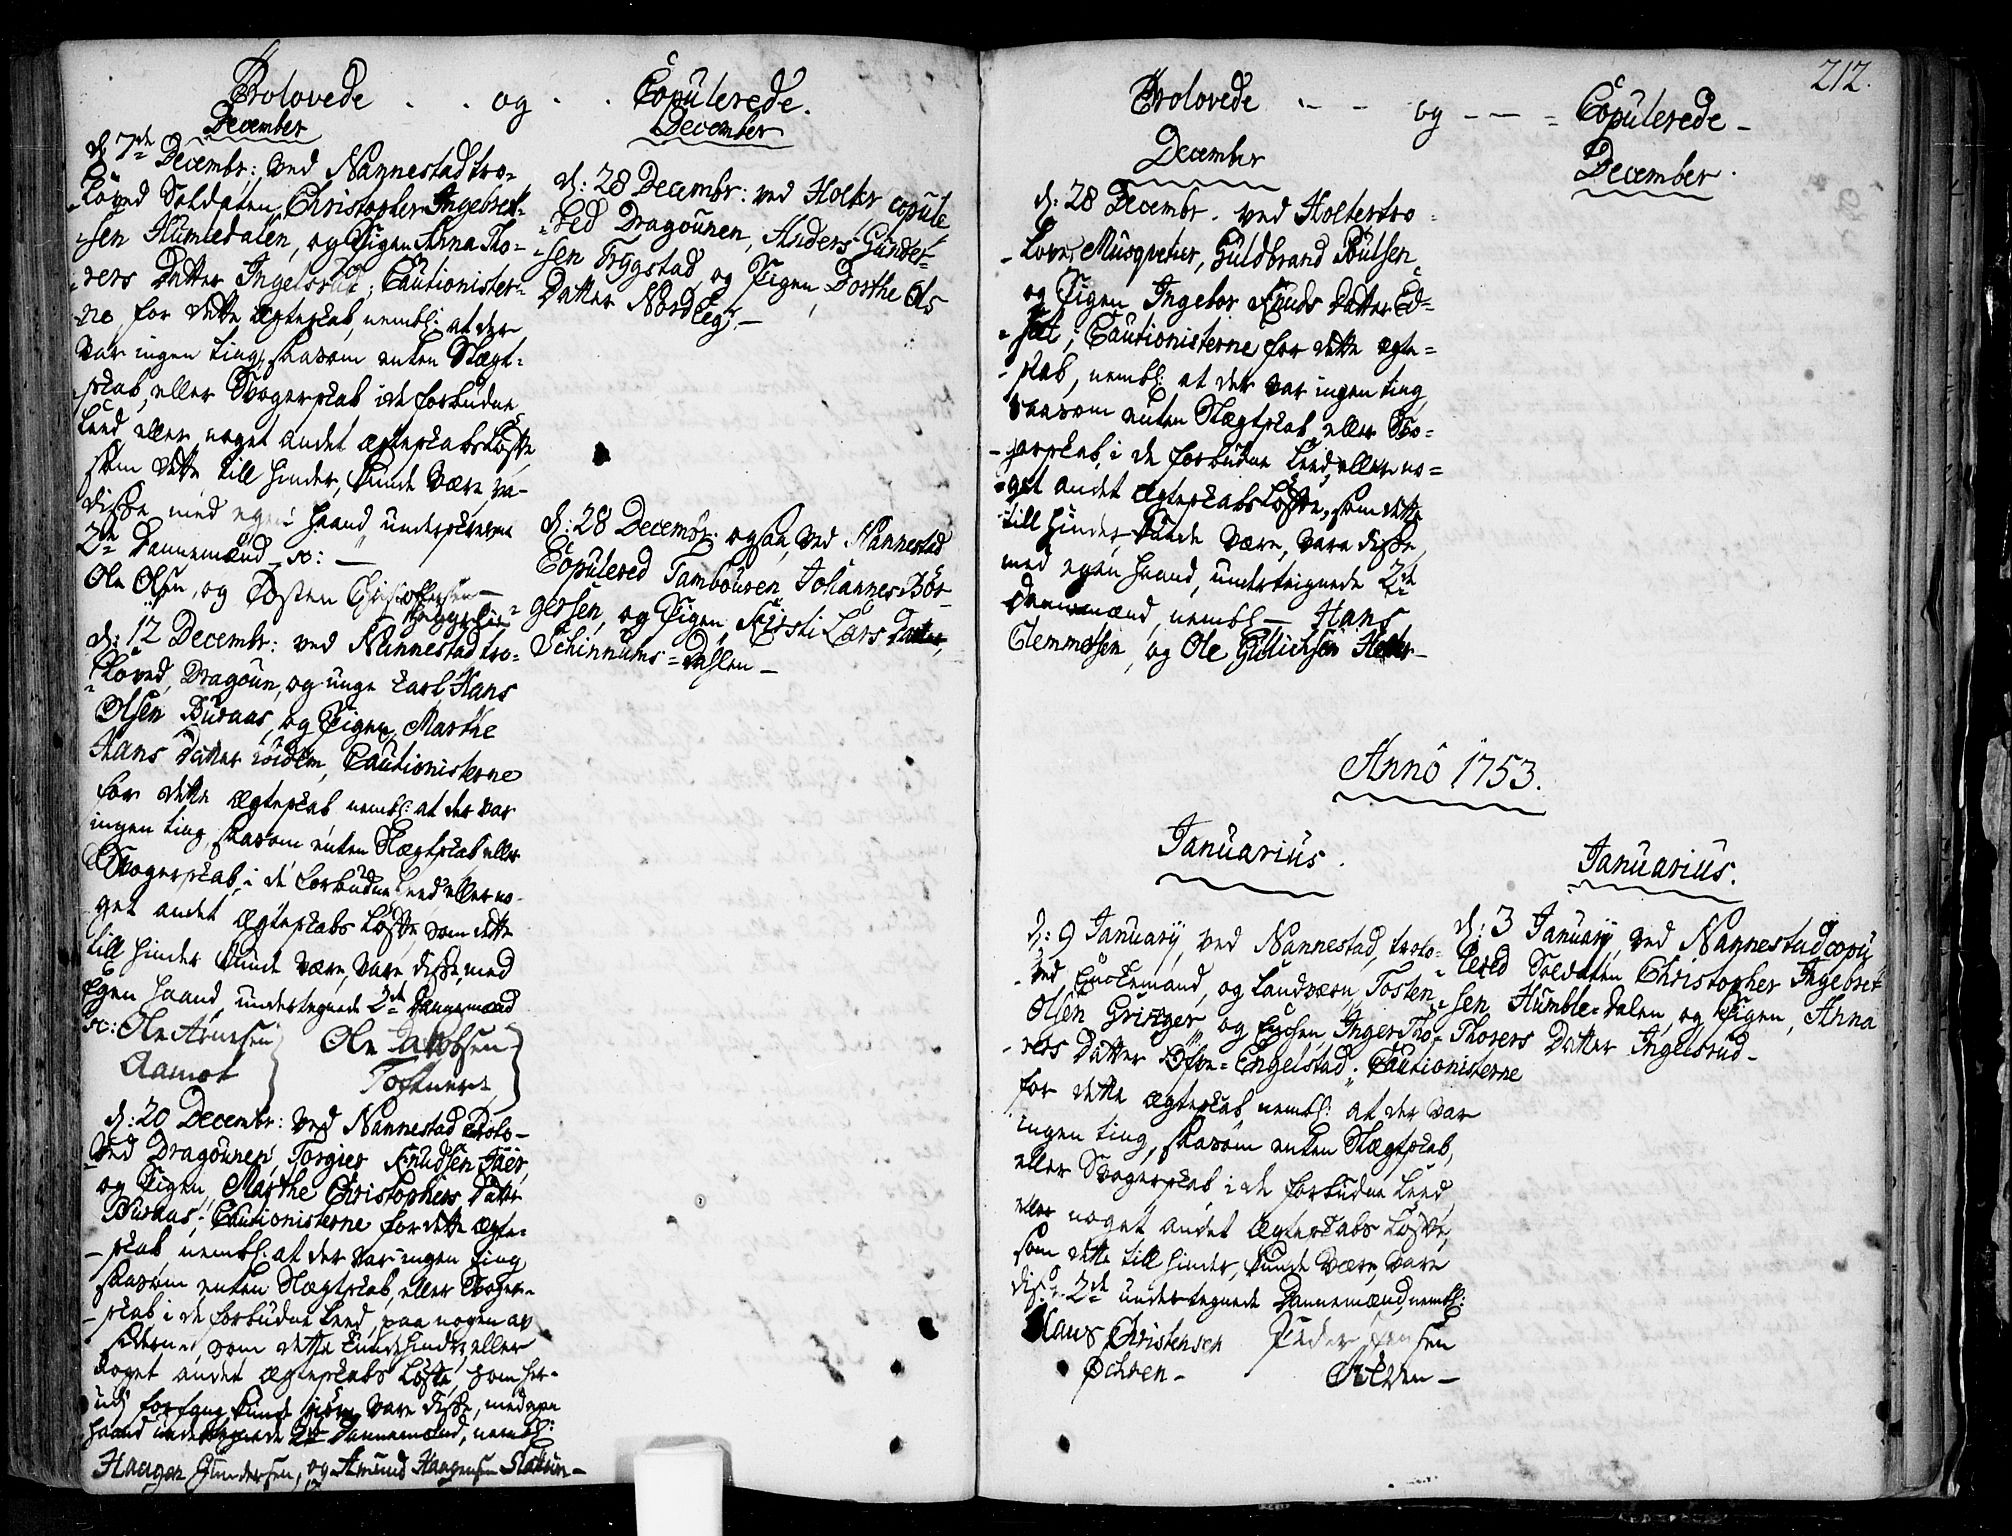 Trolovede - - og - - Copulerede.
December
d. 7de Decembr: ved Nannestad tro-
loved Soldaten, Christopher Ingebret-
sen Humledalen, og Pigen Anna Tho-
rers Datter Ingelsrud; Cautionister-
ne for dette Ægteskab, nembl: at der
var ingen ting, saasom enten Slægt-
skab, eller Svogerskab i de forbudne
Leed, eller noget andet Ægteskabs Løfte
som dette till hinder kunde være, va-
disse med egen haand underskrevne
2de Dannemænd sc: —
Ole Olsen, og Tosten Christophersen —
d: 12 Decembr: ved Nannestad tro-
loved, Dragoun, og unge Karl Hans
Olsen Buraas, og Pigen Marthe
Hans Datter ibidem, Cautionisterne
for dette Ægteskab nembl: at der var
ingen ting, saasom enten Slægtskab eller
Svogerskab, i de forbudne Leed eller no-
get andet Ægteskabs Løfte, som dette
till hinder kunde være, vare disse, med
Egen haand undertegnede 2de Dannemænd
sc: Ole Arnesen Ole Jacobsen
Aamot
d: 20 Decembr: ved Nannestad Trolo-
ved Dragounen, Torgier Knudsen Jaer,
og Pigen, Marthe Christophers Datter
Buraas; Cautionisterne for dette Ægte-
skab nembl: at der var ingen ting
saasom enten Slægtskab, eller Svoger-
skab i de forbudne Leed, paa nogen av
siderne, som dette kunde hindre, eller
noget andet Ægteskabs Løfte, som her-
udj kunde være, vare disse, med egen
haand undertegnede 2de Dannemænd, nembl:
Haagen Gundersen, og Amund Haagensen
December
d: 28 Decembr: ved Holter copule-
red Dragounen, Anders Gunder-
sen Trygstad og Pigen, Dorthe Ols
Datter Nordbye; —
d: 28 Decembr: ogsaa ved Nannestad
Copulered Tambouren Johannes Bør-
gersen, og Pigen Kirsti Lars Datter,
Schinnums-Dahlen —
212.
Trolovede - - - og - - - Copulerede -
December
d: 28 Decembr. ved Holter tro-
lovr. Musquetier, Guldbrand Poulsen,
og Pigen Ingebor Knuds Datter Ed-
set; Cautionisterne for dette Ægte-
skab, nembl: at der var ingen ting
saasom enten Slægtskab, eller Svo-
gerskab, i de forbudne Leed, eller no-
get andet Ægteskabs Løfte, som dette
till hinder kunde være, vare disse,
med egen haand, undertegnede 2de
Dannemænd, nembl — Hans
Clemmetsen, og Ole Gulichsen Holter —
December.
Anno 1753.
Januarius.
d: 9 January, ved Nannestad, trolo-
ved, Enckemand, og Landværn, Tosten
Olsen Gringer, og Enchen, Inger Tho-
rers Datter Øfre-Engelstad; Cautionisterne
for dette Ægteskab nembl: at der var
ingen ting, saasom enten Slægtskab,
eller Svogerskab i de forbudne Leed,
eller noget andet Ægteskabs Løfte,
som dette till hinder, kunde være, vare
disse 2de undertegnede Dannemænd, nembl:
Hans Christensen Peder Jensen
Ochren -
Januarius.
d: 3 January, ved Nannestad copu-
lered Soldaten Christopher Ingebret-
sen Humble-dalen, og Pigen, Anna
Thorers Datter Ingelsrud -